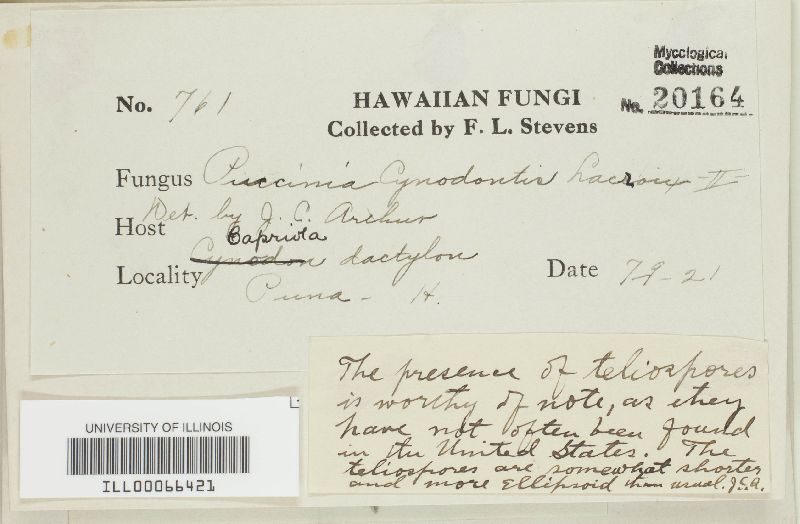 Mycological
Collections
No. 20164
No. 761
HAWAIIAN FUNGI
Collected by F. L. Stevens
Fungus Puccinia Cynodontis Lacroix II
Det. by J. C. Arthur
Host
Capriola
Cynodon dactylon
Locality
Puna - H.
Date 7-9-21
The presence of teliospores
is worthy of note, as they
have not often been found
in the United States. The
teliospores are somewhat shorter
and more ellipsoid than usual. J.C.A.
UNIVERSITY OF ILLINOIS
ILL00066421